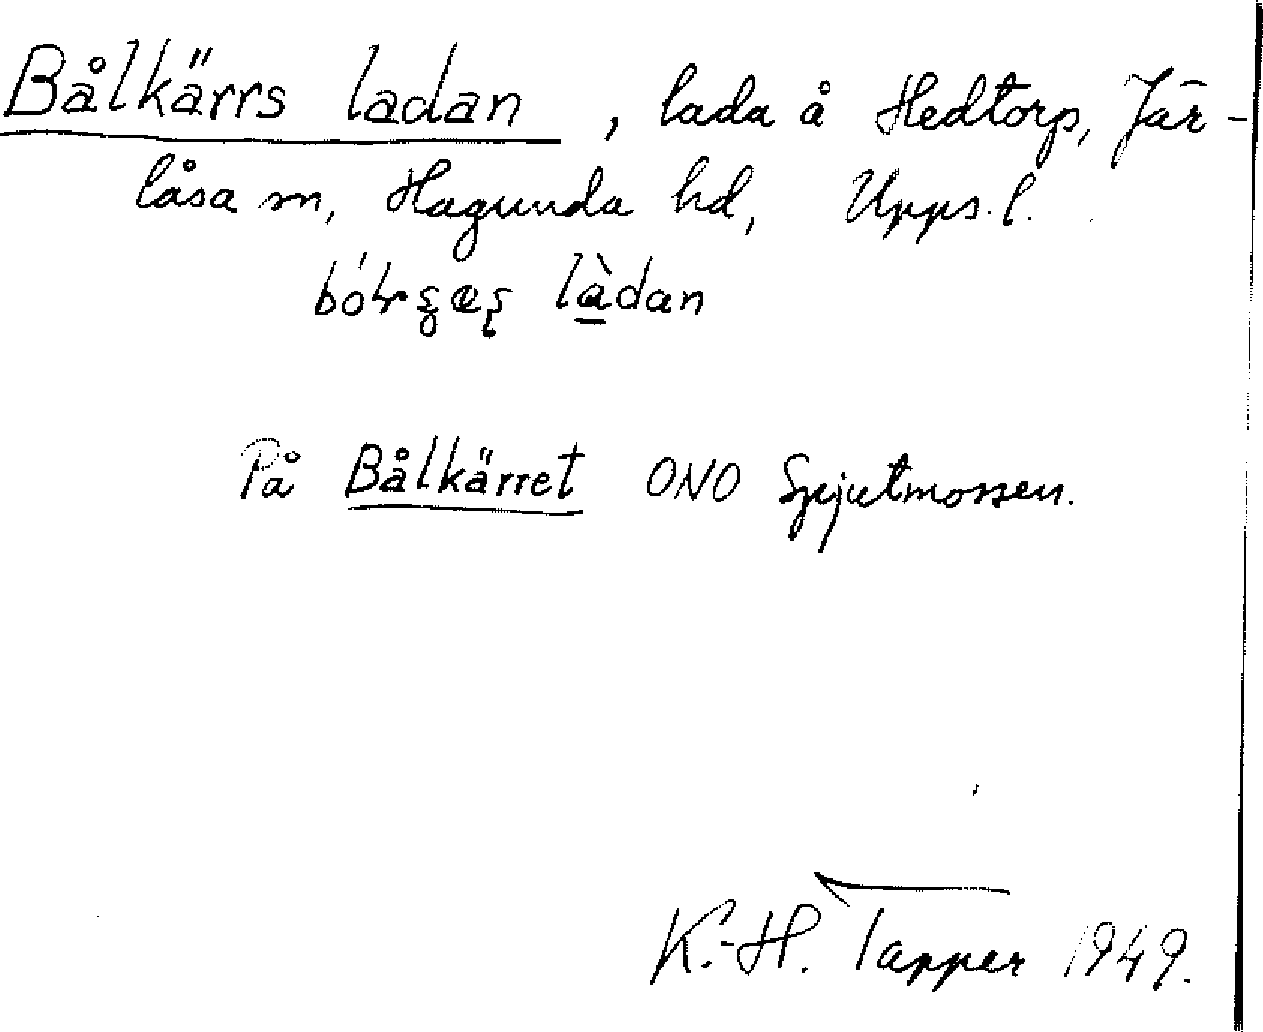 Bålkärrs ladan, lada å Hedtorp, Jär-
låsa sn, Hagunda hd, Upps. l.
làdan
På Bålkärret ONO Spjutmossen.
K.-H. Tapper 1949.